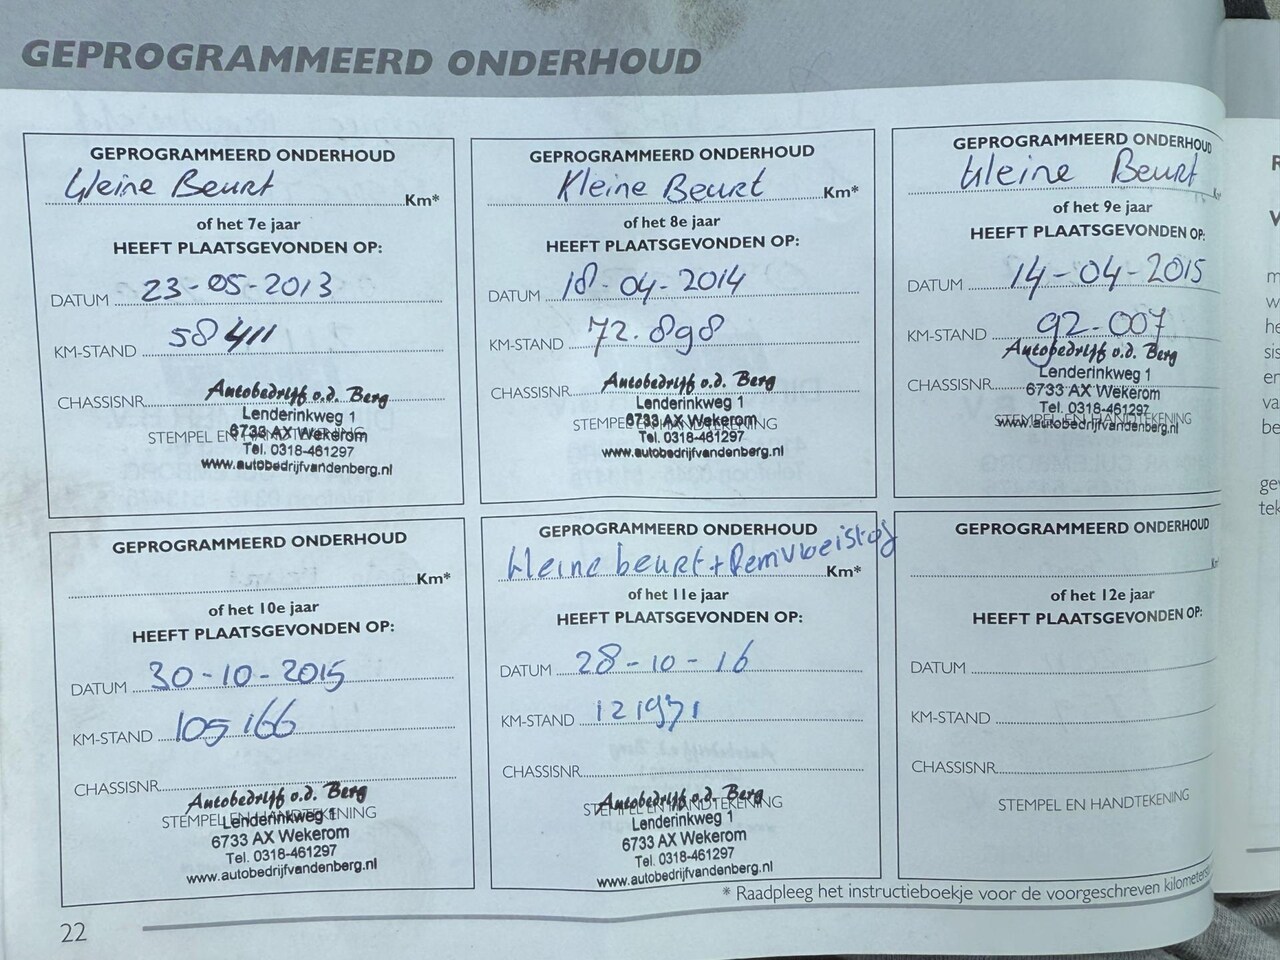 GEPROGRAMMEERD ONDERHOUD
GEPROGRAMMEERD ONDERHOUD
Kleine Beurt
Km*
of het 7e jaar
HEEFT PLAATSGEVONDEN OP:
DATUM 23-05-2013
KM-STAND 58411
CHASSISNR.
Autobedrijf v.d. Berg
Lenderinkweg 1
STEMPEL EN HANDTEKENING
6733 AX Wekerom
Tel. 0318-461297
www.autobedrijfvandenberg.nl
GEPROGRAMMEERD ONDERHOUD
Kleine Beurt
Km*
of het 8e jaar
HEEFT PLAATSGEVONDEN OP:
DATUM 18-04-2014
KM-STAND 72.898
CHASSISNR.
Autobedrijf v.d. Berg
Lenderinkweg 1
STEMPEL EN HANDTEKENING
6733 AX Wekerom
Tel. 0318-461297
www.autobedrijfvandenberg.nl
GEPROGRAMMEERD ONDERHOUD
Kleine Beurt
of het 9e jaar
HEEFT PLAATSGEVONDEN OP:
DATUM 14-04-2015
KM-STAND 92-007
Autobedrijf v.d. Berg
Lenderinkweg 1
CHASSISNR.
6733 AX Wekerom
Tel. 0318-461297
STEMPEL EN HANDTEKENING
www.autobedrijfvandenberg.nl
GEPROGRAMMEERD ONDERHOUD
Km*
of het 10e jaar
HEEFT PLAATSGEVONDEN OP:
DATUM 30-10-2015
KM-STAND 105166
CHASSISNR.
Autobedrijf v.d. Berg
STEMPEL EN HANDTEKENING
Lenderinkweg 1
6733 AX Wekerom
Tel. 0318-461297
www.autobedrijfvandenberg.nl
GEPROGRAMMEERD ONDERHOUD
kleine beurt + Remvloeistof
Km*
of het 11e jaar
HEEFT PLAATSGEVONDEN OP:
DATUM 28-10-16
KM-STAND 121971
CHASSISNR.
Autobedrijf v.d. Berg
STEMPEL EN HANDTEKENING
Lenderinkweg 1
6733 AX Wekerom
Tel. 0318-461297
www.autobedrijfvandenberg.nl
GEPROGRAMMEERD ONDERHOUD
of het 12e jaar
HEEFT PLAATSGEVONDEN OP:
DATUM
KM-STAND
CHASSISNR.
STEMPEL EN HANDTEKENING
* Raadpleeg het instructieboekje voor de voorgeschreven
22